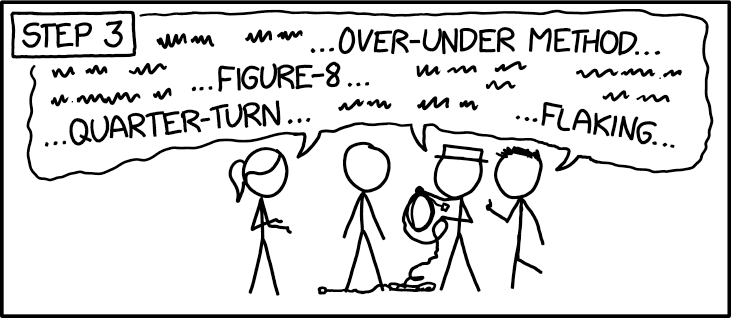 STEP 3
...OVER-UNDER METHOD...
...FIGURE-8...
...QUARTER-TURN...
...FLAKING...